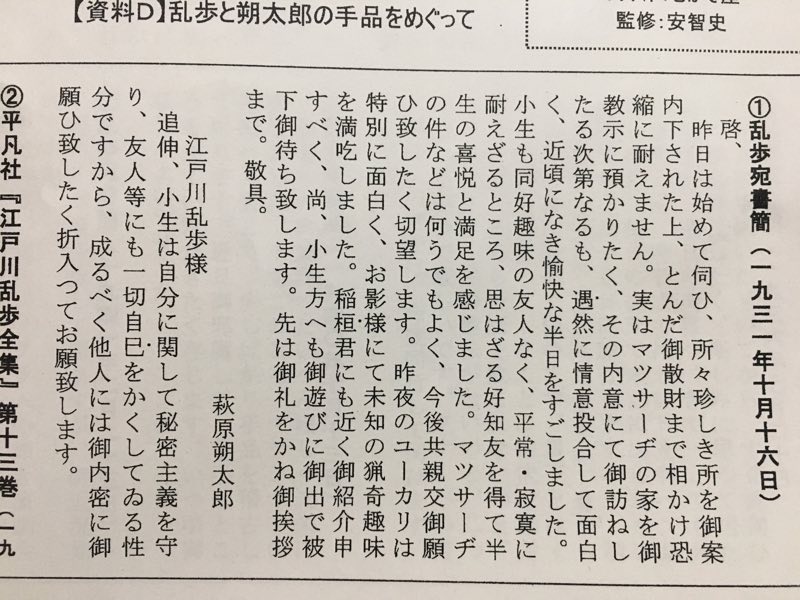 【資料D】乱歩と朔太郎の手品をめぐって
監修:安智史
①乱歩宛書簡(一九三一年十月十六日)
啓、
昨日は始めて伺ひ、所々珍しき所を御案
内下された上、とんだ御散財まで相かけ恐
縮に耐えません。実はマツサーヂの家を御
教示に預かりたく、その内意にて御訪ねし
たる次第なるも、遇然に情意投合して面白
く、近頃になき愉快な半日をすごしました。
小生も同好趣味の友人なく、平常・寂寞に
耐えざるところ、思はざる好知友を得て半
生の喜悦と満足を感じました。マツサーヂ
の件などは何うでもよく、今後共親交御願
ひ致したく切望します。昨夜のユーカリは
特別に面白く、お影様にて未知の猟奇趣味
を満吃しました。稲垣君にも近く御紹介申
すべく、尚、小生方へも御遊びに御出で被
下御待ち致します。先は御礼をかね御挨拶
まで。敬具。
萩原朔太郎
江戸川乱歩様
追伸、小生は自分に関して秘密主義を守
り、友人等にも一切自巳をかくしてゐる性
分ですから、成るべく他人には御内密に御
願ひ致したく折入つてお願致します。
②平凡社『江戸川乱歩全集』第十三巻(一九